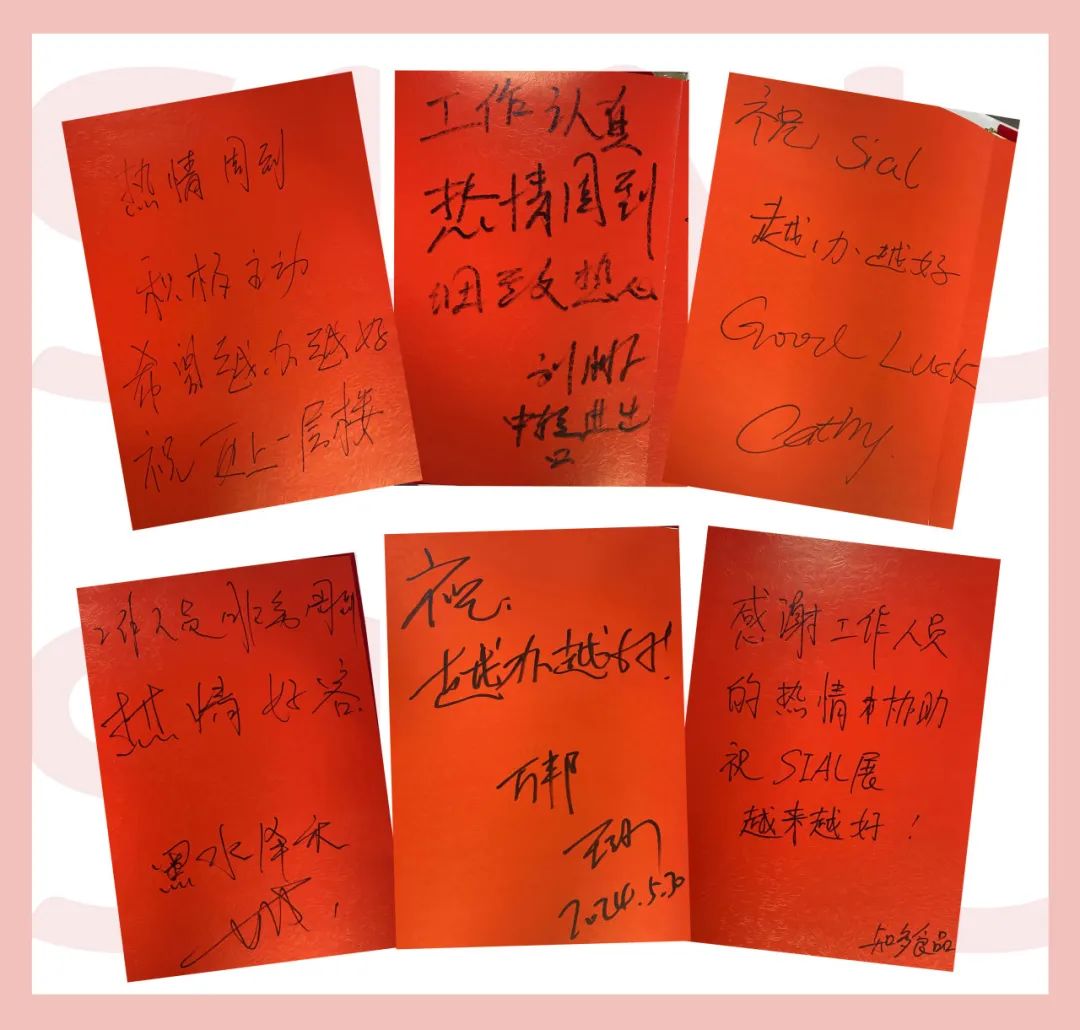 热情周到
积极主动
希望越办越好
祝更上一层楼
工作认真
热情周到
细致热心
中粮进出
口
祝 Sial
越办越好
Good Luck
Cathy
工作人员非常周到
热情好客
黑水泽禾
祝:
越办越好!
万邦
2024.5.30
感谢工作人员
的热情和协助
祝 SIAL展
越来越好!
知多食品